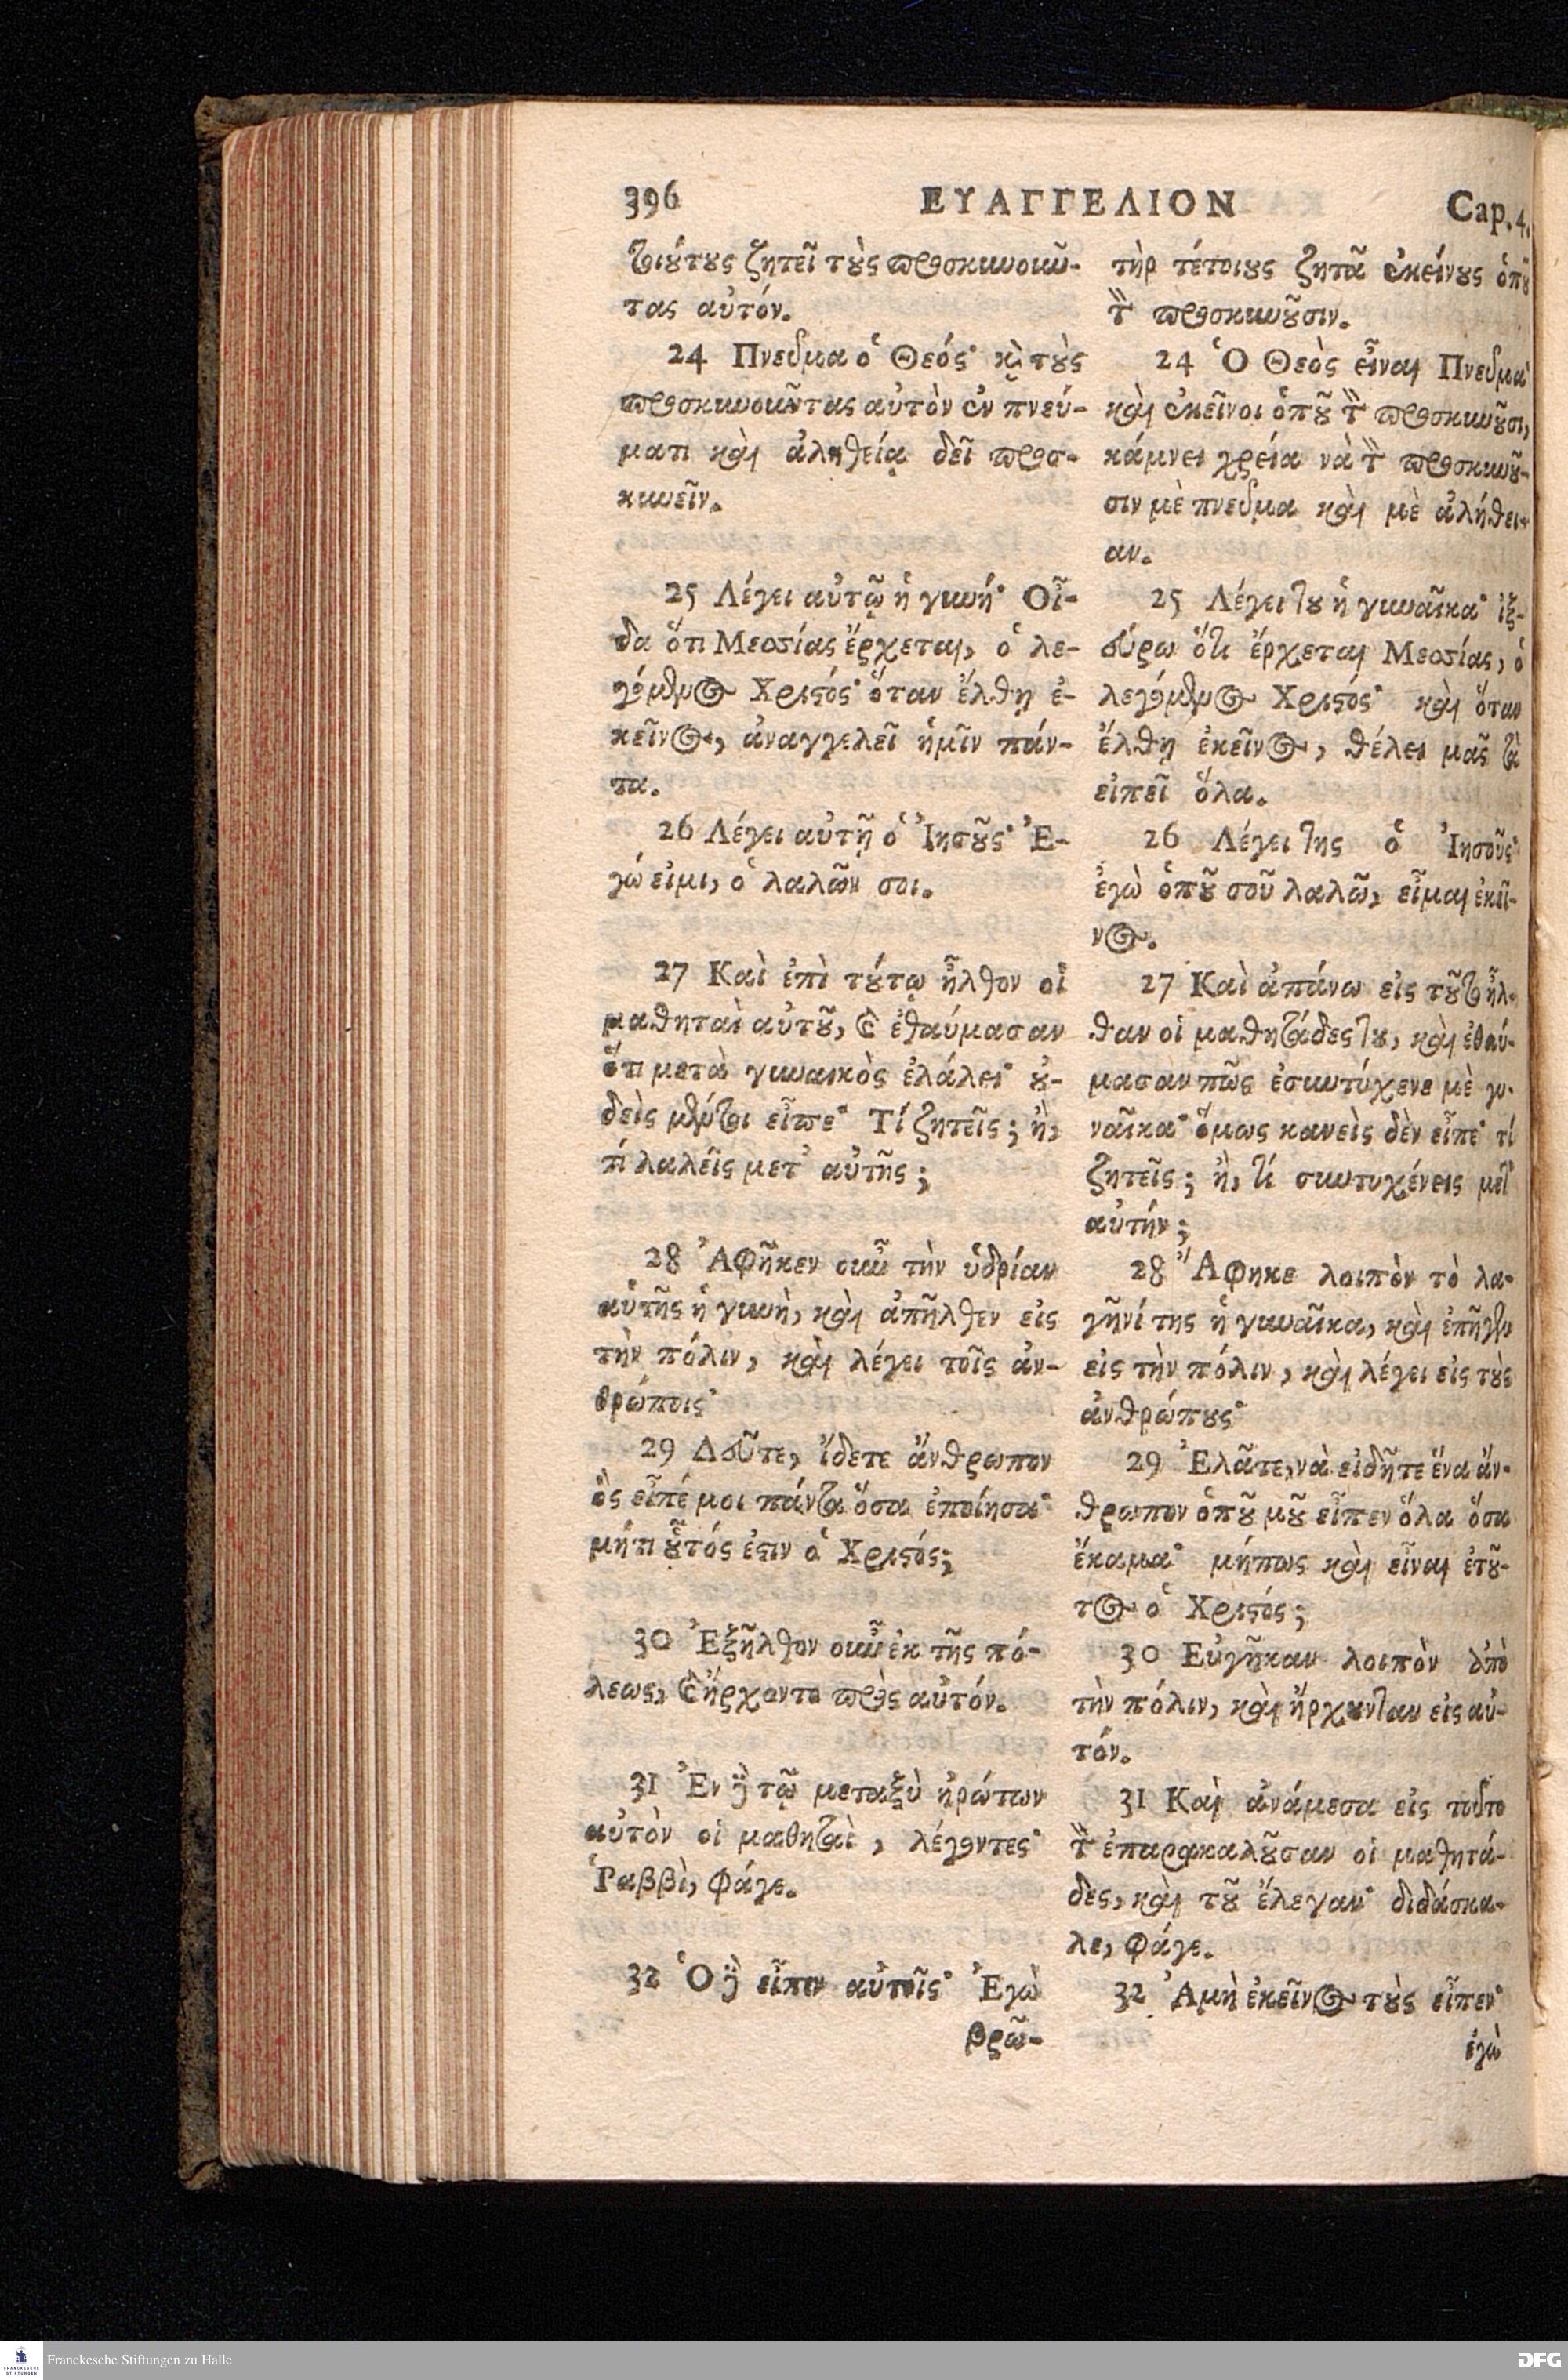 396
ΕΥΑΓΓΕΛΙΟΝ
Cap. 4.
τοιούτους ζητεῖ τοὺς προσκυνοῦν-
τας αὐτόν.
24 Πνεῦμα ὁ Θεός· καὶ τοὺς
προσκυνοῦντας αὐτὸν ἐν πνεύ-
ματι καὶ ἀληθείᾳ δεῖ προσ-
κυνεῖν.
25 Λέγει αὐτῷ ἡ γυνή· Οἶ-
δα ὅτι Μεσσίας ἔρχεται, ὁ λε-
γόμενος Χριστός· ὅταν ἔλθῃ ἐ-
κεῖνος, ἀναγγελεῖ ἡμῖν πάν-
τα.
26 Λέγει αὐτῇ ὁ Ἰησοῦς· Ἐ-
γώ εἰμι, ὁ λαλῶν σοι.
27 Καὶ ἐπὶ τούτῳ ἦλθον οἱ
μαθηταὶ αὐτοῦ, καὶ ἐθαύμασαν
ὅτι μετὰ γυναικὸς ἐλάλει· οὐ-
δεὶς μέντοι εἶπε· Τί ζητεῖς; ἢ,
τί λαλεῖς μετ' αὐτῆς;
28 Ἀφῆκεν οὖν τὴν ὑδρίαν
αὑτῆς ἡ γυνὴ, καὶ ἀπῆλθεν εἰς
τὴν πόλιν, καὶ λέγει τοῖς ἀν-
θρώποις·
29 Δεῦτε, ἴδετε ἄνθρωπον
ὃς εἶπέ μοι πάντα ὅσα ἐποίησα·
μήτι οὗτός ἐστιν ὁ Χριστός;
30 Ἐξῆλθον οὖν ἐκ τῆς πό-
λεως, καὶ ἤρχοντο πρὸς αὐτόν.
31 Ἐν δὲ τῷ μεταξὺ ἠρώτων
αὐτὸν οἱ μαθηταὶ, λέγοντες·
Ῥαββὶ, φάγε.
32 Ὁ δὲ εἶπεν αὐτοῖς· Ἐγὼ
βρῶ-
τὴρ τέτοιους ζητᾶ ἐκείνους ὁποῦ
τὸν προσκυνοῦσιν.
24 Ὁ Θεὸς εἶναι Πνεῦμα·
καὶ ἐκεῖνοι ὁποῦ τὸν προσκυνοῦσι,
κάμνει χρεία νὰ τὸν προσκυνοῦ-
σιν μὲ πνεῦμα καὶ μὲ ἀλήθει-
αν.
25 Λέγει του ἡ γυναῖκα· ἰξ-
εύρω ὅτι ἔρχεται Μεσσίας, ὁ
λεγόμενος Χριστός· καὶ ὅταν
ἔλθῃ ἐκεῖνος, θέλει μᾶς τὰ
εἰπεῖ ὅλα.
26 Λέγει της ὁ Ἰησοῦς·
ἐγὼ ὁποῦ σοῦ λαλῶ, εἶμαι ἐκεῖ-
νος.
27 Καὶ ἀπάνω εἰς τοῦτο ἦλ-
θαν οἱ μαθητάδες του, καὶ ἐθαύ-
μασαν πῶς ἐσυντύχενε μὲ γυ-
ναῖκα· ὅμως κανεὶς δὲν εἶπε· τί
ζητεῖς; ἢ, τί συντυχένεις μετ'
αὐτήν;
28 Ἄφηκε λοιπὸν τὸ λα-
γῆνί της ἡ γυναῖκα, καὶ ἐπῆγεν
εἰς τὴν πόλιν, καὶ λέγει εἰς τοὺς
ἀνθρώπους·
29 Ἐλᾶτε, νὰ εἰδῆτε ἕνα ἄν-
θρωπον ὁποῦ μοῦ εἶπεν ὅλα ὅσα
ἔκαμα· μήπως καὶ εἶναι ἐτοῦ-
τος ὁ Χριστός;
30 Εὐγῆκαν λοιπὸν ἀπὸ
τὴν πόλιν, καὶ ἤρχουνταν εἰς αὐ-
τόν.
31 Καὶ ἀνάμεσα εἰς τοῦτο
τὸν ἐπαρακαλοῦσαν οἱ μαθητά-
δες, καὶ τοῦ ἔλεγαν· διδάσκα-
λε, φάγε.
32 Ἀμὴ ἐκεῖνος τοὺς εἶπεν·
ἐγὼ
Franckesche Stiftungen zu Halle
DFG